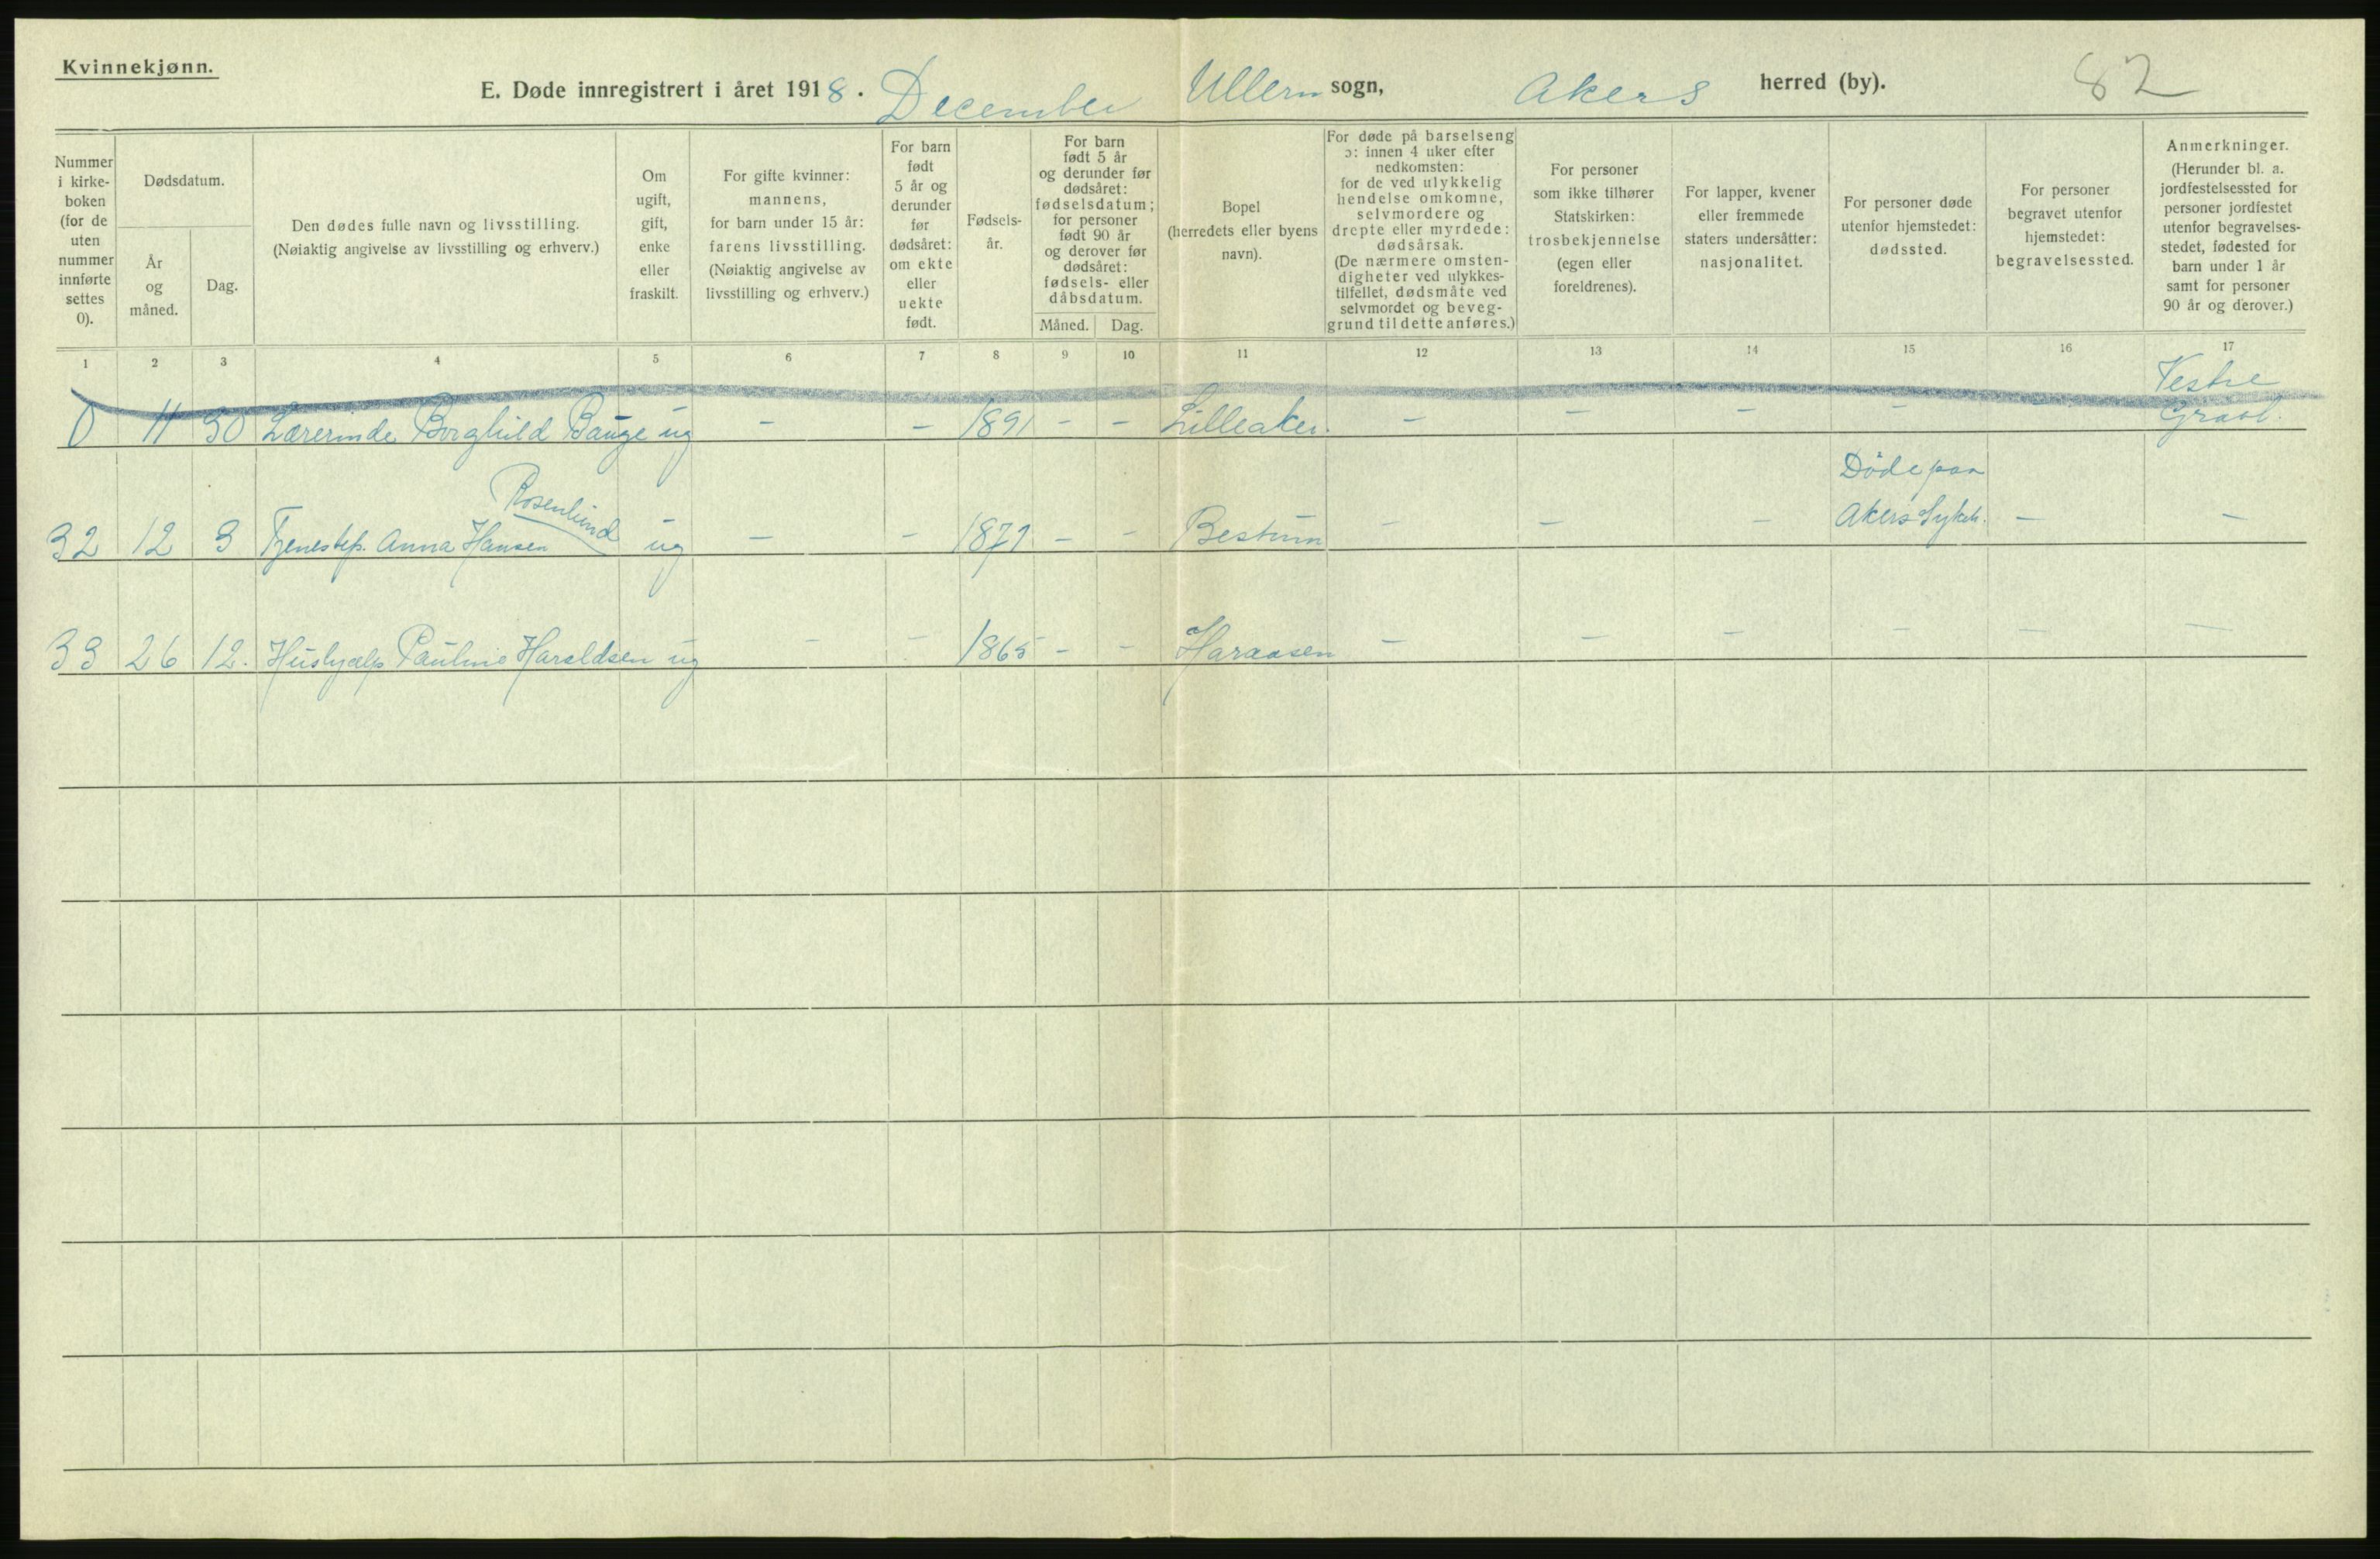 Kvinnekjønn.
E. Døde innregistrert i året 1918. December Ullern sogn, Akers herred (by). 82
Nummer
i kirke-
boken
(for de
uten
nummer
innførte
settes
0).
Dødsdatum.
År
og
måned.
Dag.
Den dødes fulle navn og livsstilling.
(Nøiaktig angivelse av livsstilling og erhverv.)
Om
ugift,
gift,
enke
eller
fraskilt.
For gifte kvinner:
mannens,
for barn under 15 år:
farens livsstilling.
(Nøiaktig angivelse av
livsstilling og erhverv.)
For barn
født
5 år og
derunder
før
dødsåret:
om ekte
eller
uekte
født.
Fødsels-
år.
For barn
født 5 år
og derunder før
dødsåret:
fødselsdatum;
for personer
født 90 år
og derover før
dødsåret:
fødsels- eller
dåbsdatum.
Måned. Dag.
Bopel
(herredets eller byens
navn).
For døde på barselseng
ɔ: innen 4 uker efter
nedkomsten:
for de ved ulykkelig
hendelse omkomne,
selvmordere og
drepte eller myrdede:
dødsårsak.
(De nærmere omsten-
digheter ved ulykkes-
tilfellet, dødsmåte ved
selvmordet og beveg-
grund til dette anføres.)
For personer
som ikke tilhører
Statskirken:
trosbekjennelse
(egen eller
foreldrenes).
For lapper, kvener
eller fremmede
staters undersåtter:
nasjonalitet.
For personer døde
utenfor hjemstedet:
dødssted.
For personer
begravet utenfor
hjemstedet:
begravelsessted.
Anmerkninger.
(Herunder bl. a.
jordfestelsessted for
personer jordfestet
utenfor begravelses-
stedet, fødested for
barn under 1 år
samt for personer
90 år og derover.)
1 2 3 4 5 6 7 8 9 10 11 12 13 14 15 16 17
Vestre
0 11 30 Lærerinde Borghild Bauge ug - - 1891 - - Lilleaker. - - - - - Gravl.
Døde paa
Rosenlund
32 12 3 Tjenestep. Anna Hansen ug - - 1871 - - Bestum - - - Akers Sykeh. - -
33 26 12. Hushjælp Pauline Haraldsen ug - - 1865 - - Haraasen - - - - - -